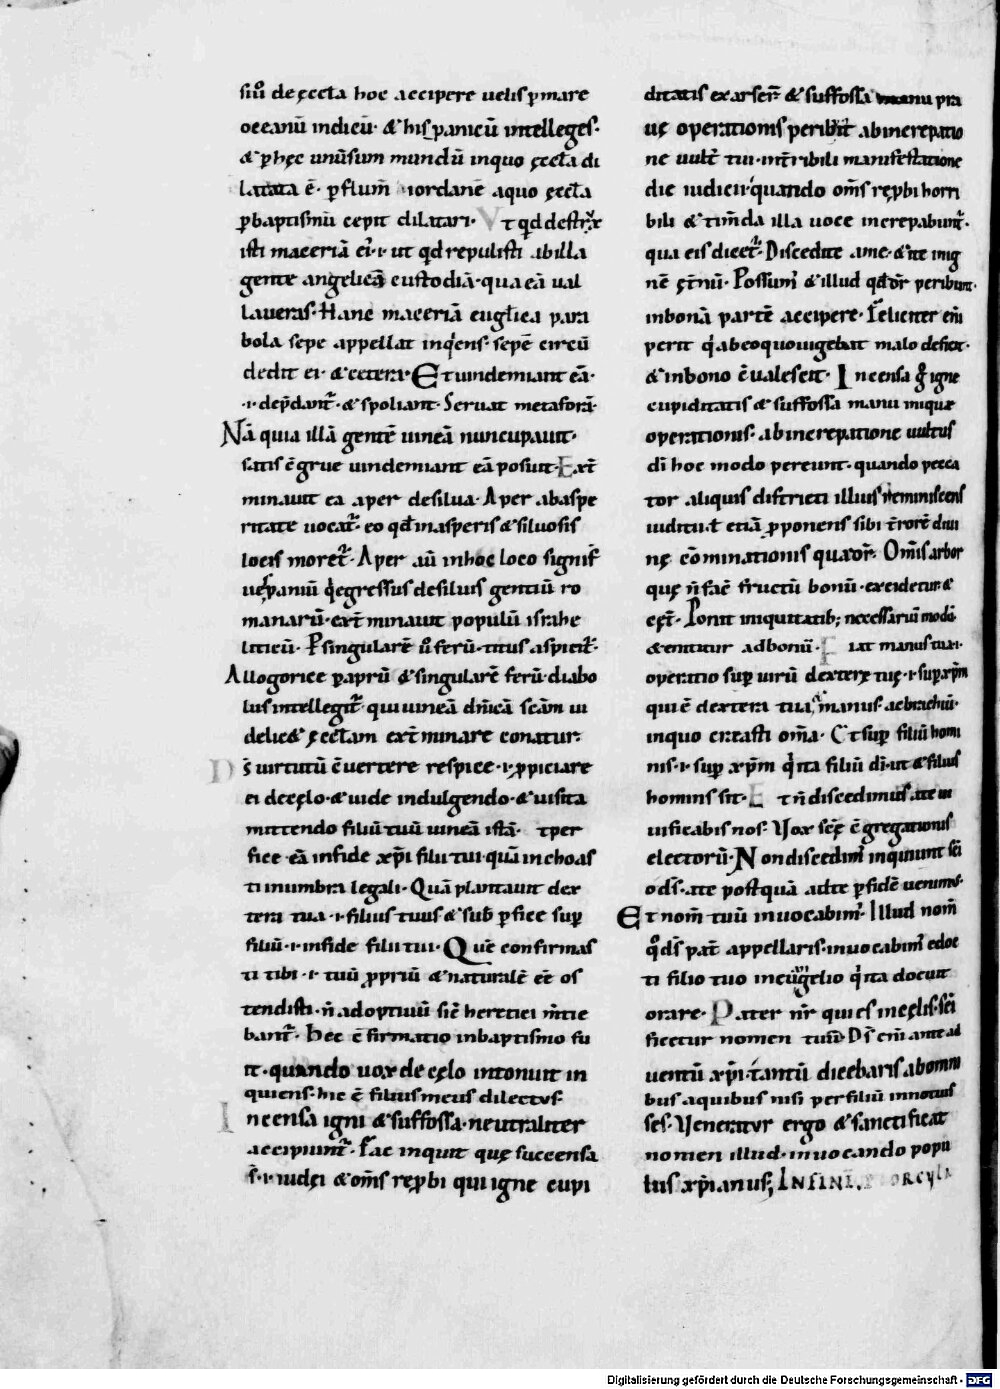 siũ de ęccła hoc accipere uelis p mare
oceanũ indicũ· & hispanicũ intelleges·
& p hęc uniũsum mundũ in quo ęccła di
latata ē· p flum̃ iordanē a quo ęccła
p baptismũ cepit dilatari· Vt qd destrx̃
isti maceriã ei᾽· i· ut qd repulisti ab illa
gente angelicã custodiã· qua eã ual
laueras· Hanc maceriã eugl̃ica para
bola sepe appellat inq̃ens· sepē circũ
dedit ei· & cetera· Et uindemiant eã·
·i· dep̃dant᷑· & spoliant· Seruat metaforã·
Nã quia illã gentē uineã nuncupauit·
satis c̃grue uindemiant eã posuit· Ext̃
minauit ea aper de silua· Aper ab aspe
ritate uocat᷑· eo qd in asperis & siluosis
locis moret᷑· Aper aũ in hoc loco signif̃
uespaniũ q̃ egressus de siluis gentiũ ro
manarũ· ext̃minauit populũ israhe
liticũ· P singularē ũo ferũ· titus aspicit᷑·
Allogorice p aprũ & singularē ferũ· diabo
lus intellegit᷑· qui uineã dñicã sc̃am ui
delic& ęccłam ext̃minare conatur·
Dš uirtutũ c̃uertere respice· i· ppiciare
ei de cęlo· & uide indulgendo· & uisita
mittendo filiũ tuũ uineã istã· & per
fice eã in fide xp̃i filii tui· quã inchoas
ti in umbra legali· Quã plantauit dex
tera tua· i· filius tuus & sub p̃fice sup
filiũ· i· in fide filii tui· Quē confirmas
ti tibi· i· tuũ ppriũ & naturalē eē os
tendisti· ñ adoptiuũ sic̃ heretici m̃tie
bant᷑· Hec c̃firmatio in baptismo fu
it· quando uox de cęlo intonuit in
quiens· hic ē filius meus dilectus·
Incensa igni & suffossa· neutraliter
accipiunt᷑· Fac inquit quę succensa
š· i· iudęi & om̃s repbi qui igne cupi
ditatis exarser̃ & suffossa manu pra
uę operationis peribit ab increpatio
ne uult᷑ tui· in t̃ribili manifestatione
die iudicii· quando om̃s repbi horri
bili & tim̃da illa uoce increpabunt᷑·
qua eis dicet᷑· Discedite a me· & ite in ig
nē ęt̃nũ· Possum᷒ & illud qd dr̃ peribunt·
in bonã partē accipere· Feliciter eni
perit q̃ ab eo quo uigebat malo deficit·
& in bono c̃ualescit· Incensa g̃ igne
cupiditatis & suffossa manu iniquę
operationis· ab increpatione uultus
dĩ hoc modo pereunt· quando pecca
tor aliquis districti illius reminiscens
iudicii ut etiã p̃ponens sibi t̃rorē diui
nę cōminationis qua dr̃· Om̃is arbor
quę ñ fac̃ fructũ bonũ· excidetur &
cęt̃· Ponit iniquitatib; necessariũ modũ·
& enititur ad bonũ· Fiat manus tua· i·
operatio sup uirũ dexterę tuę· i· sup xp̃m
qui ē dextera tua, manus· ac brachiũ·
in quo creasti om̃ia· Et sup filiũ homi
nis· i· sup xp̃m q̃ ita filiũ dĩ· ut & filius
hominis sit· Et ñ discedimus a te ui
uificabis nos· Uox scę c̃gregationis
electorũ· Non discedim᷒ inquiunt sc̃i
o dš· a te postquã ad te p fidē uenimus·
Et nom̃ tuũ inuocabim᷒· Illud nom̃
q̃ dš pat̃ appellaris· inuocabim᷒ edoc
ti filio tuo in eũgelio q̃ ita docuit
orare· Pater nr̃ qui es in cęlis· sc̃i
ficetur nomen tuũ· Dš eni᷒ ante ad
uentũ xp̃i· tantũ dicebaris ab omni
bus a quibus nisi per filiũ innotuis
ses· Ueneratur ergo & sanctificat
nomen illud· inuocando popu
lus xp̃ianus; IN FINĒ. P TORCULA
Digitalisierung gefördert durch die Deutsche Forschungsgemeinschaft - DFG